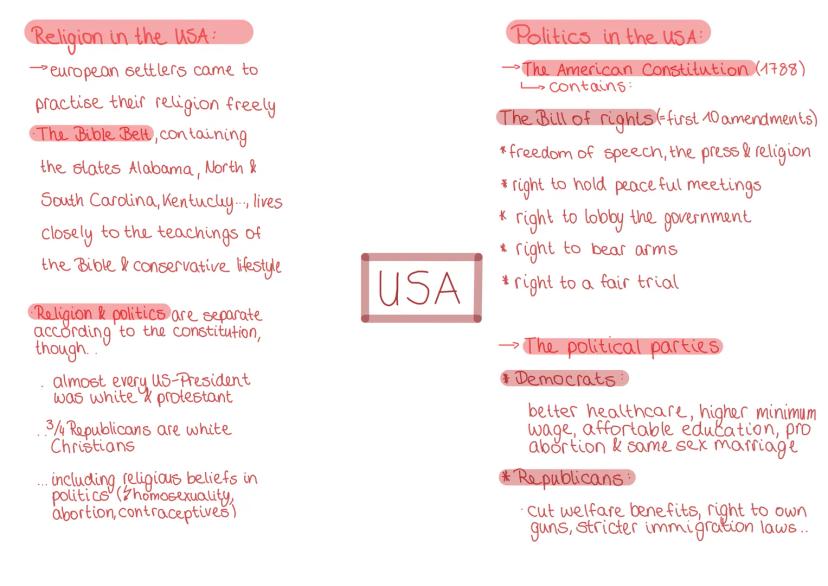 Religion in the USA:
→ european settlers came to
practise their religion freely
·The Bible Belt, containing
the states Alabama, North &
South Carolina, Kentucky..., lives
closely to the teachings of
the Bible & conservative lifestyle
·Religion & politics are separate
according to the constitution,
though..
. almost every US-President
was white & protestant
.. 3/4 Republicans are white
Christians
... including religious beliefs in
politics (↯homosexuality,
abortion, contraceptives)
USA
Politics in the USA:
→ The American Constitution (1788)
↳ contains:
The Bill of rights (=first 10 amendments)
* freedom of speech, the press & religion
* right to hold peaceful meetings
* right to lobby the government
* right to bear arms
* right to a fair trial
→ The political parties
* Democrats:
better healthcare, higher minimum
wage, affordable education, pro
abortion & same sex marriage
* Republicans:
· cut welfare benefits, right to own
guns, stricter immigration laws..